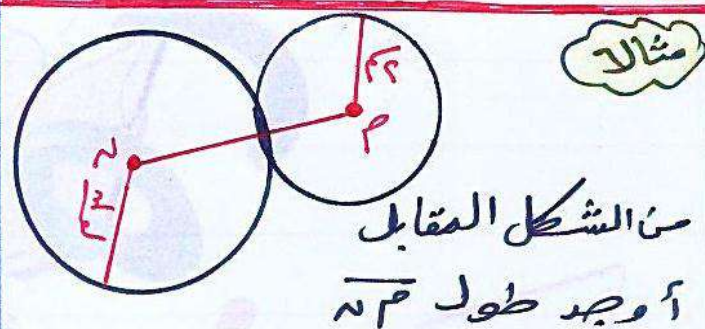 مثال٦
٢سم
م
ن
٣سم
من الشكل المقابل
أوجد طول م ن